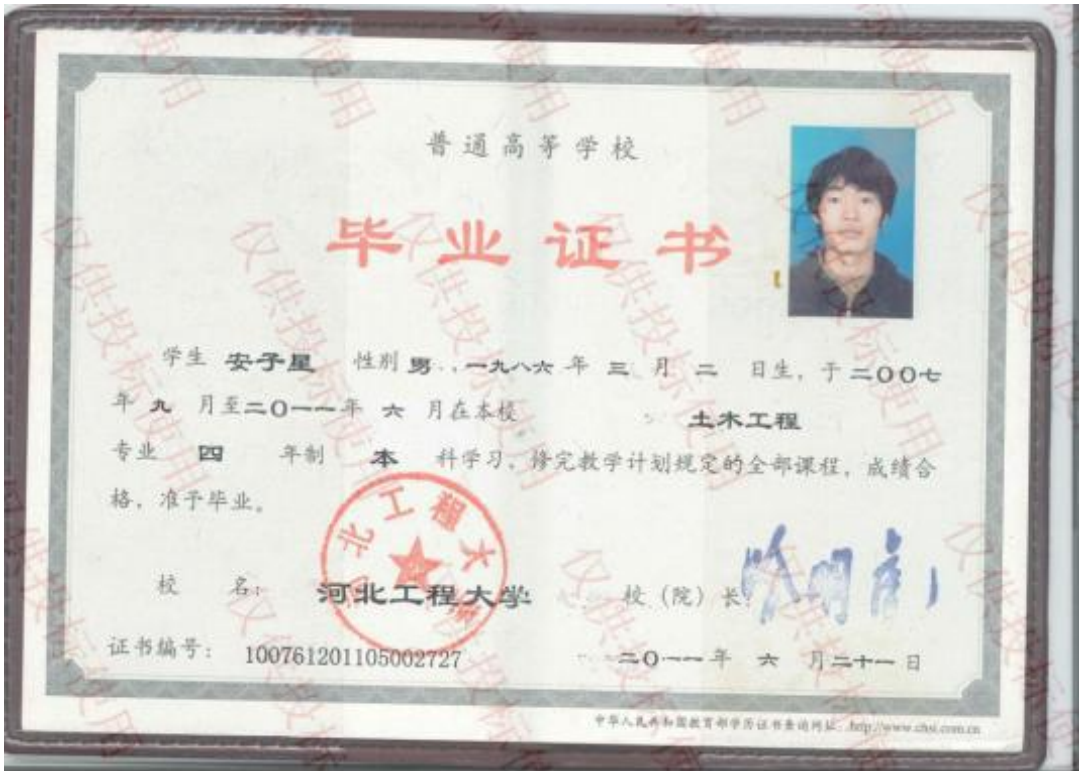 普通高等学校
毕业证书
学生 安子星 性别 男，一九八六 年 三 月 二 日生，于 二〇〇七
年 九 月至 二〇一一 年 六 月在本校 土木工程
专业 四 年制 本 科学习，修完教学计划规定的全部课程，成绩合
格，准予毕业。
河北工程大学
校 名： 河北工程大学 校（院）长：
证书编号： 100761201105002727 二〇一一 年 六 月 二十一 日
中华人民共和国教育部学历证书查询网址：http://www.chsi.com.cn
仅供投标使用